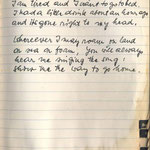 I am tired and I want to go to bed,
I had a little drink about an hour ago
and it's gone right to my head.
Wherever I may roam, on land
or sea or foam, you will always
hear me singing the song;
show me the way to go home.